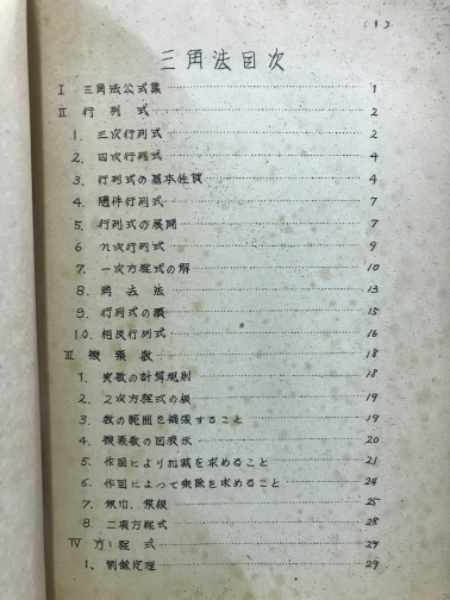 (1)
三角法目次
I 三角法公式集 1
II 行列式 2
1. 三次行列式 2
2. 四次行列式 4
3. 行列式の基本性質 4
4. 随伴行列式 7
5. 行列式の展開 7
6 n次行列式 9
7. 一次方程式の解 10
8. 消去法 13
9. 行列式の積 15
10. 相反行列式 16
III 複素数 18
1. 実数の計算規則 18
2. 2次方程式の根 19
3. 数の範囲を拡張すること 19
4. 複素数の図表示 20
5. 作図により加減を求めること 21
6. 作図によって乗除を求めること 24
7. 累巾、累根 25
8. 二項方程式 28
IV 方程式 29
1. 剰余定理 29